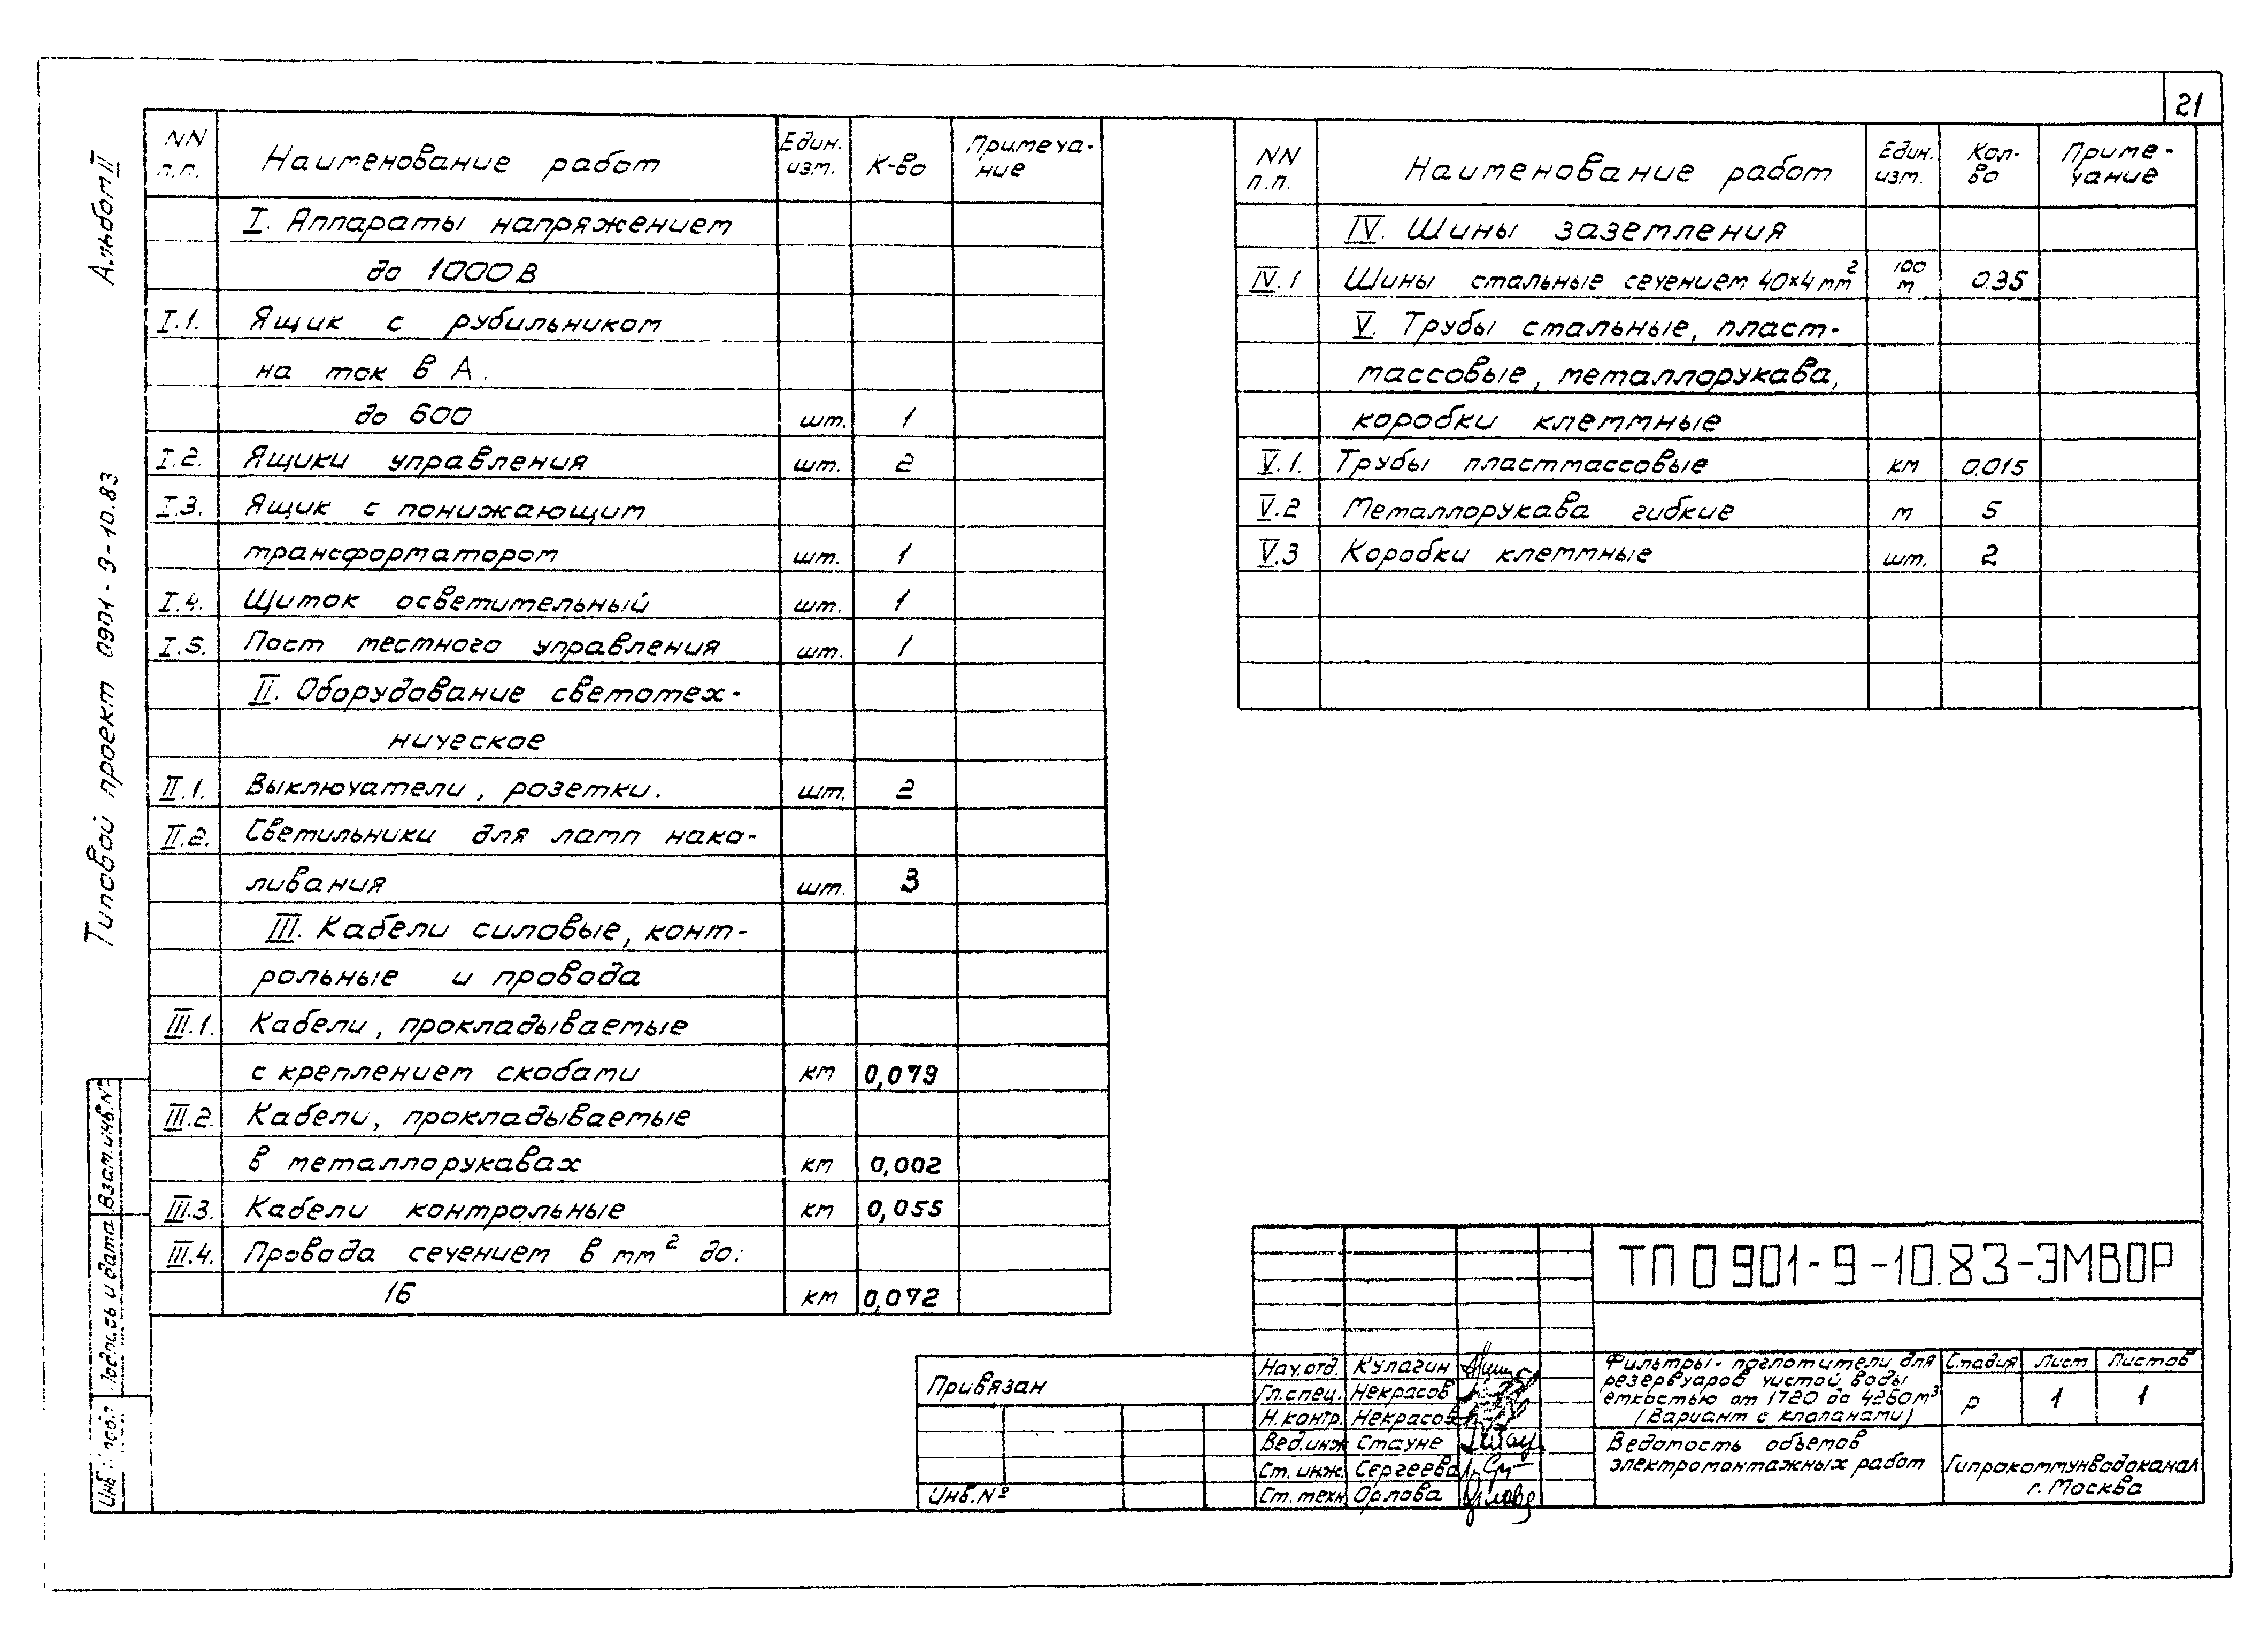 21
Альбом II
Типовой проект 0901-9-10.83
NN п.п. Наименование работ Един. изм. К-во Примеча-ние
I. Аппараты напряжением
до 1000 В
I.1. Ящик с рубильником
на ток в А.
до 600 шт. 1
I.2. Ящики управления шт. 2
I.3. Ящик с понижающим
трансформатором шт. 1
I.4. Щиток осветительный шт. 1
I.5. Пост местного управления шт. 1
II. Оборудование светотех-
ническое
II.1. Выключатели, розетки. шт. 2
II.2. Светильники для ламп нака-
ливания шт. 3
III. Кабели силовые, конт-
рольные и провода
III.1. Кабели, прокладываемые
с креплением скобами км 0,079
III.2. Кабели, прокладываемые
в металлорукавах км 0,002
III.3. Кабели контрольные км 0,055
III.4. Провода сечением в мм² до:
16 км 0,072
NN п.п. Наименование работ Един. изм. Кол-во Приме-чание
IV. Шины заземления
IV.1 Шины стальные сечением 40×4мм² 100 м 0.35
V. Трубы стальные, пласт-
массовые, металлорукава,
коробки клеммные
V.1. Трубы пластмассовые км 0.015
V.2 Металлорукава гибкие м 5
V.3 Коробки клеммные шт. 2
Взам.инв.№
Подпись и дата
Инв.№ подл
Привязан
Инв.№
Нач.отд. Кулагин
Гл.спец. Некрасов
Н.контр. Некрасов
Вед.инж Стауне
Ст. инж. Сергеева
Ст.техн Орлова
ТП 0901-9-10.83-ЭМВОР
Фильтры-поглотители для
резервуаров чистой воды
емкостью от 1720 до 4260м³
(Вариант с клапанами)
Стадия Лист Листов
р 1 1
Ведомость объемов
электромонтажных работ
Гипрокоммунводоканал
г. Москва